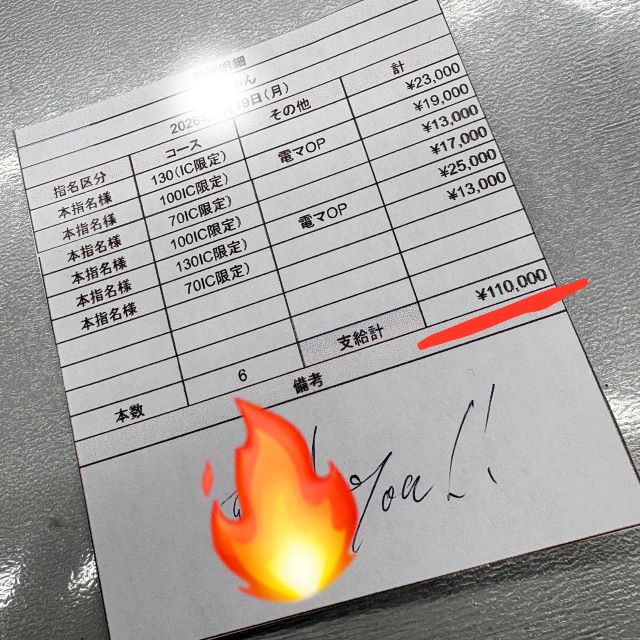 明細
ん
2026年 19日(月)
指名区分 コース その他 計
本指名様 130(IC限定) ¥23,000
本指名様 100IC限定) 電マOP ¥19,000
本指名様 70IC限定) ¥13,000
本指名様 100IC限定) ¥17,000
本指名様 130IC限定) 電マOP ¥25,000
本指名様 70IC限定) ¥13,000
本数 6 支給計 ¥110,000
備考
you!!